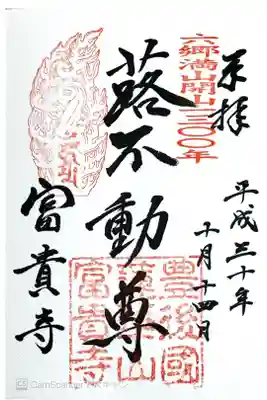 奉拝
平成三十年
十月十四日
六郷満山開山一三〇〇年
蕗不動尊
富貴寺
豊後國
蓮華山
富貴寺
CamScanner